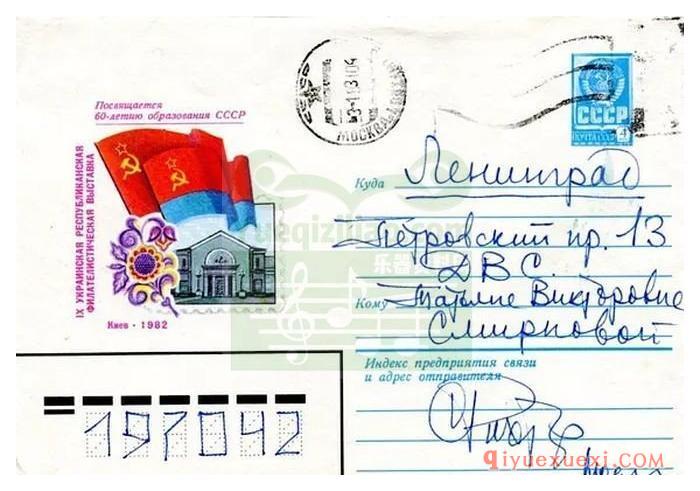 Посвящается
60-летию образования СССР
IX УКРАИНСКАЯ РЕСПУБЛИКАНСКАЯ
ФИЛАТЕЛИСТИЧЕСКАЯ ВЫСТАВКА
Киев • 1982
МОСКВА
СССР
ПОЧТА СССР
4
Куда Ленинград
Петровский пр. 13
ДВС
Кому Татьяне Викторовне
Смирновой
Индекс предприятия связи
и адрес отправителя
197042
qiyuexuexi.com